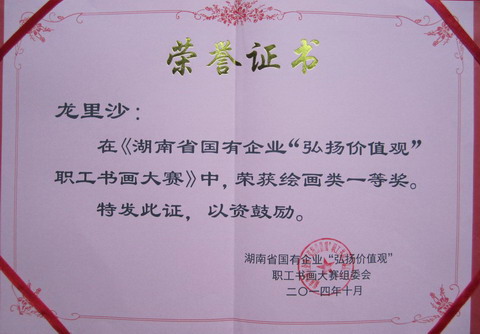 荣誉证书
龙里沙：
在《湖南省国有企业“弘扬价值观”
职工书画大赛》中，荣获绘画类一等奖。
特发此证，以资鼓励。
湖南省国有企业“弘扬价值观”
职工书画大赛组委会
二〇一四年十月